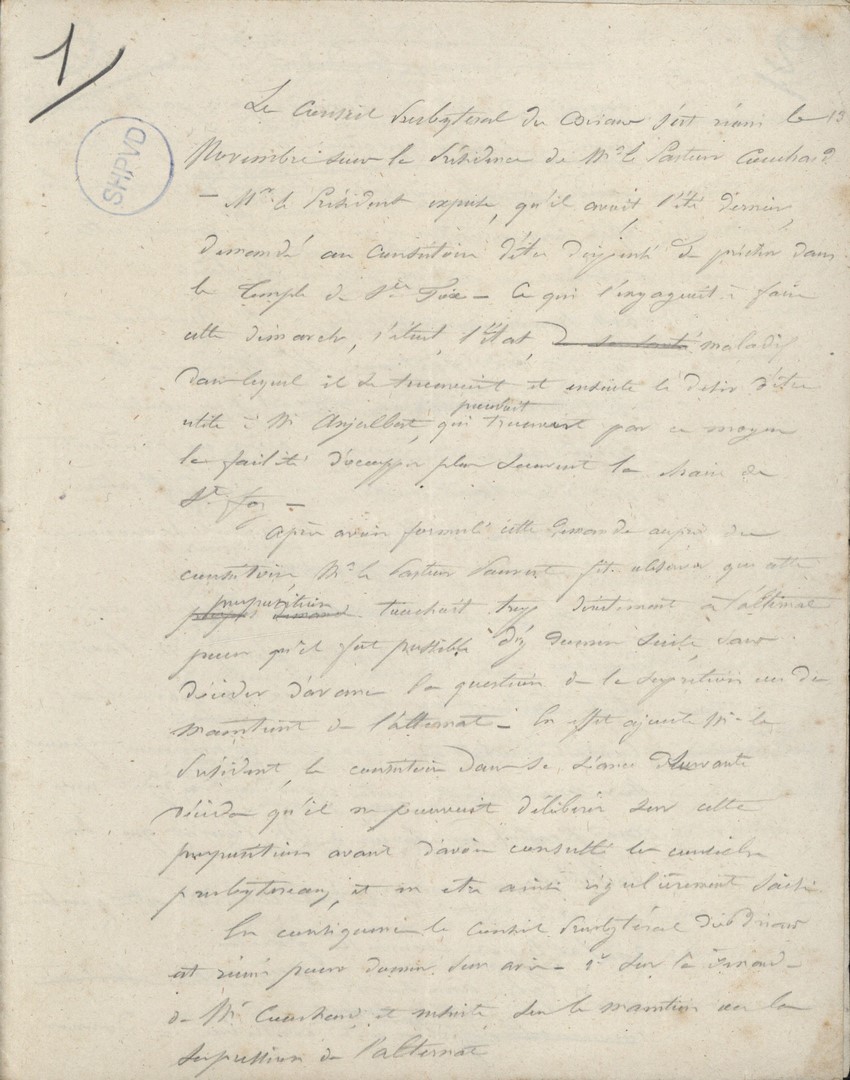 1
SHPVD
Le Conseil Presbyteral du s'est réuni le 13
Novembre sous la Présidence de Mr le Pasteur Couchard
— Mr le Président expose, qu'il avait, l'été dernier,
demandé au Consistoire d'être dispensé de prêcher dans
le Temple de Ste Foix — Ce qui l'engageait à faire
cette démarche, c'était, l'état, de sa santé maladif
dans lequel il se trouvait et ensuite le désir d'être
utile à Mr Anjalbert, qui trouvait par ce moyen
pouvait
la facilité d'occuper plus souvent la chaire de
Ste foy —
Après avoir formulé cette demande auprès du
consistoire Mr le Pasteur fit observer que cette
proposition
demande touchait trop directement à l'alternat
pour qu'il fut possible d'y donner suite, sans
décider d'avance la question de la supression ou du
maintient de l'alternat — En effet ajoute Mr le
Président, le consistoire dans sa séance suivante
décida qu'il ne pouvait délibérer sur cette
proposition avant d'avoir consulté les conseils
presbyteraux, et en etre ainsi régulièrement saisi.
En conséquence le Conseil Presbytéral
est réuni pour donner son avis — 1o sur la demande
de Mr Couchard et ensuite sur le maintien ou la
supression de l'alternat